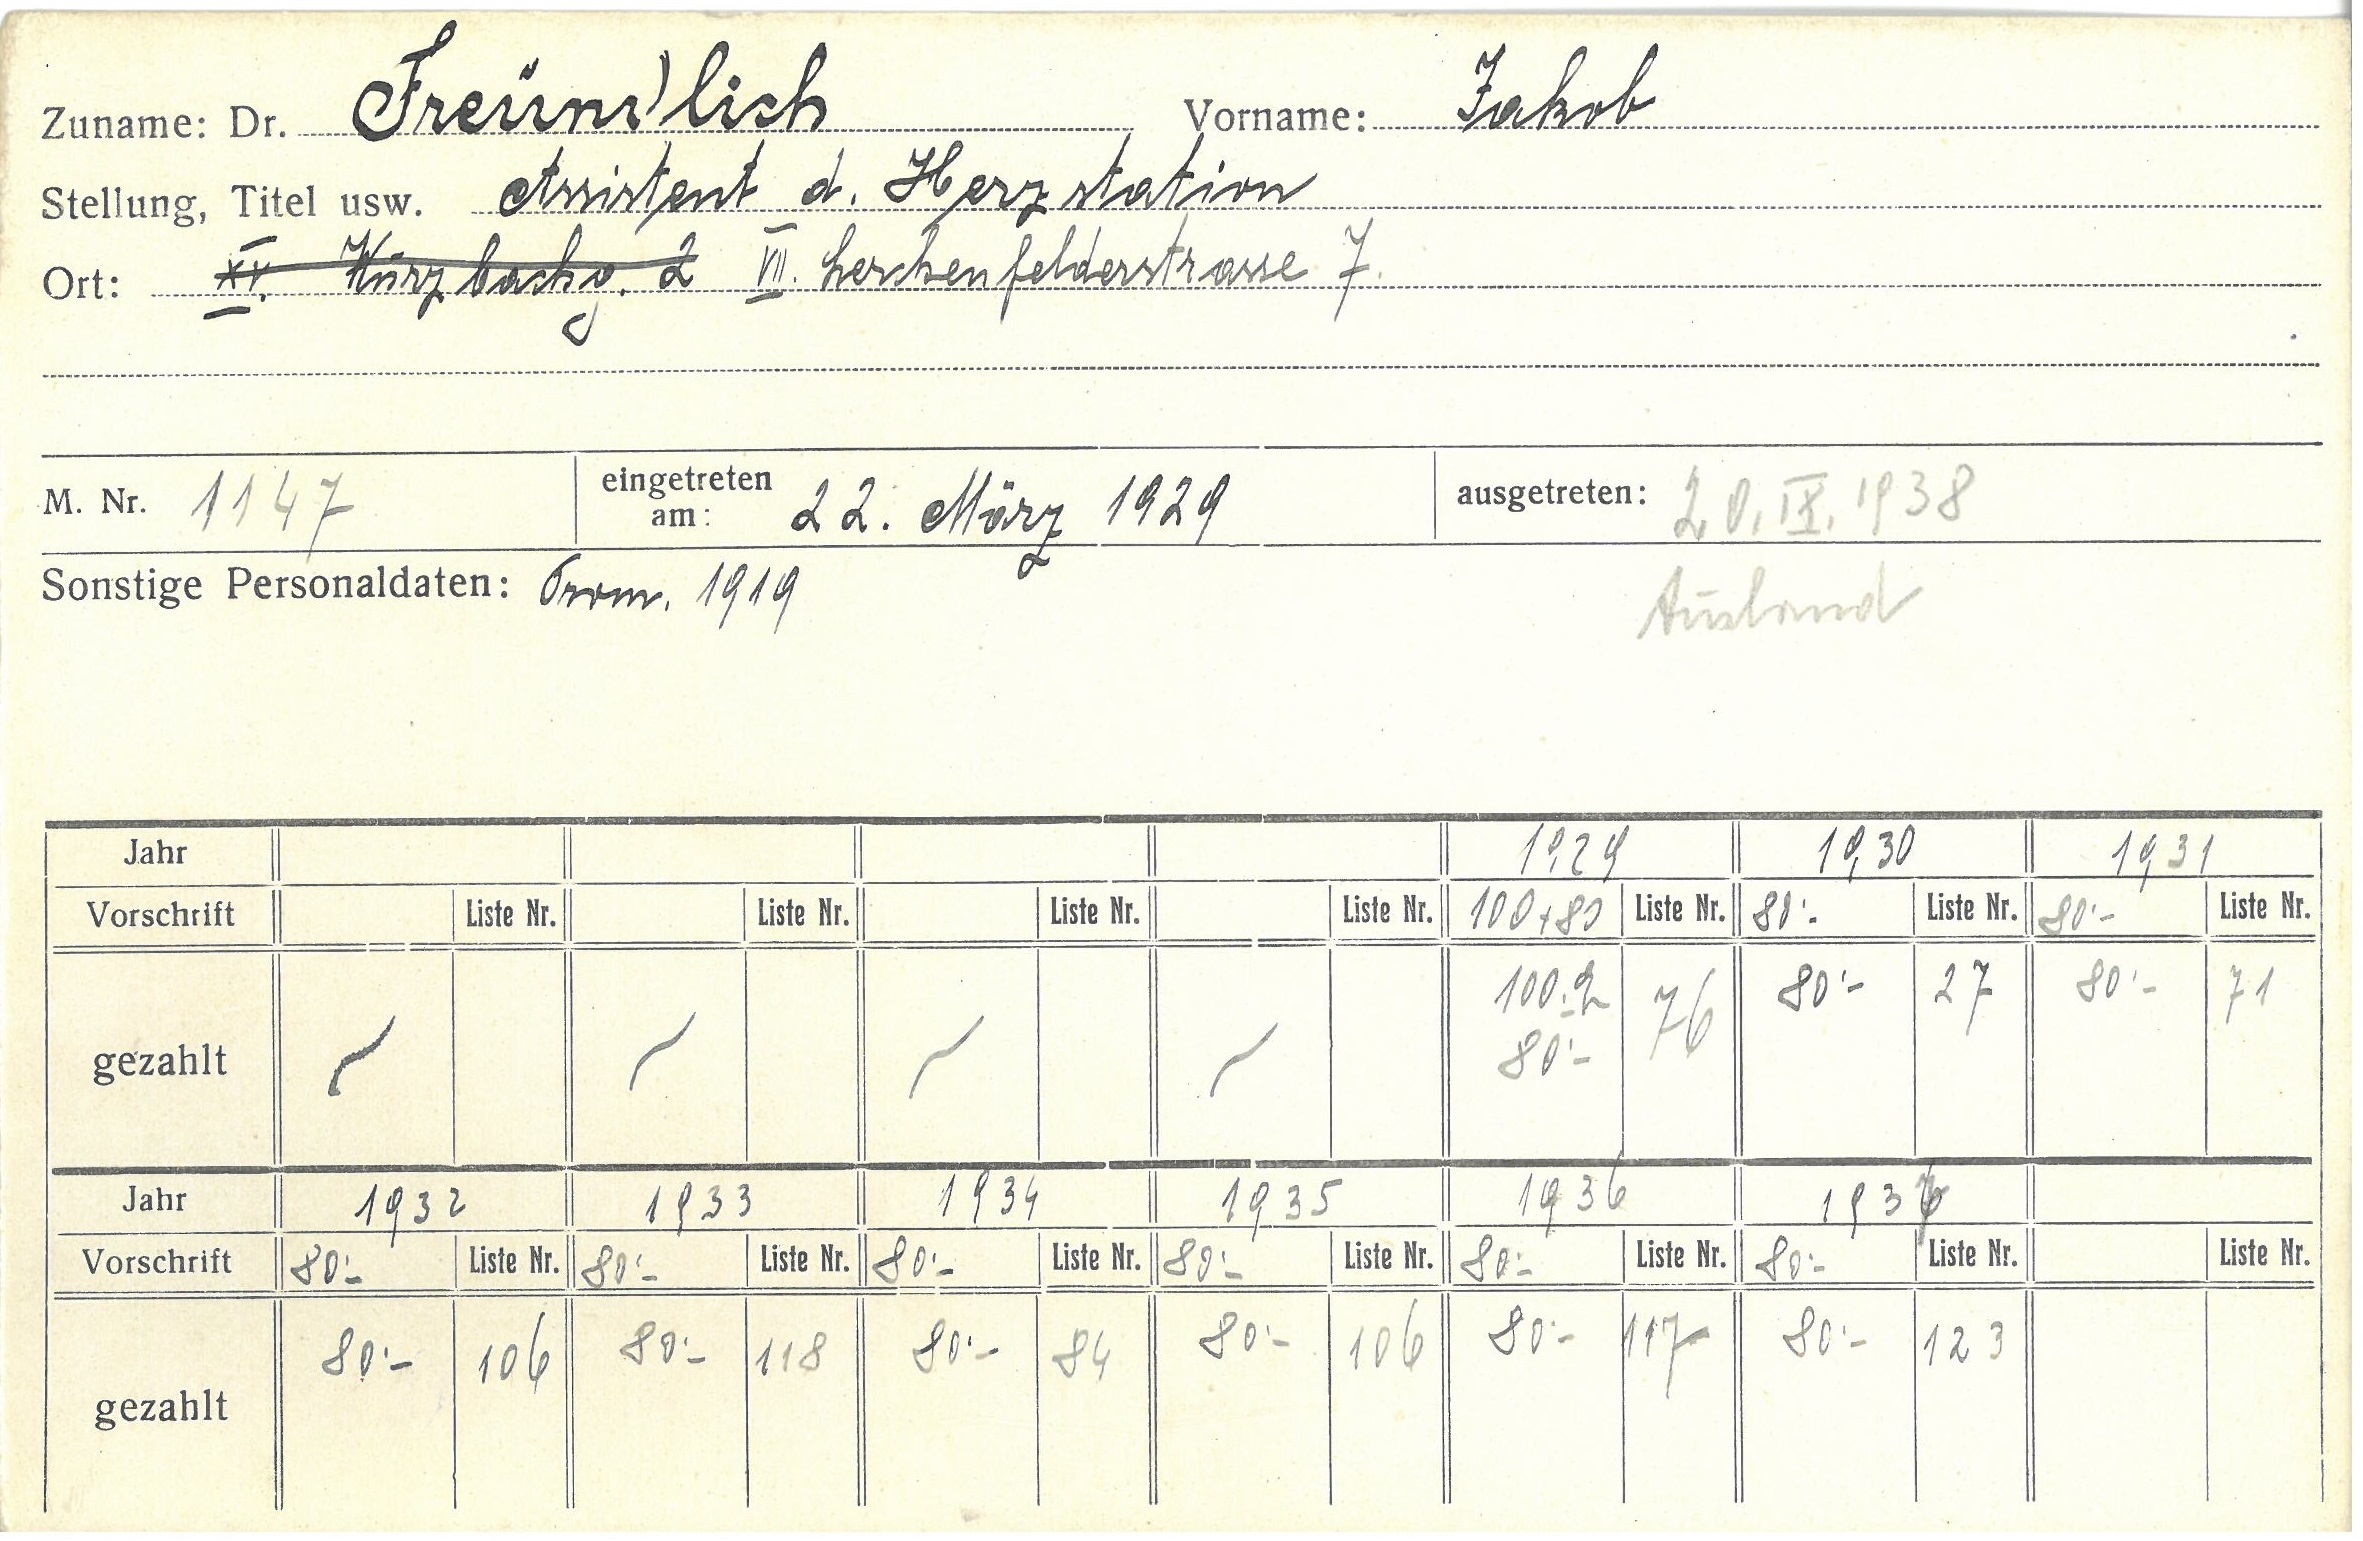 Zuname: Dr. Freündlich Vorname: Jakob
Stellung, Titel usw. Assistent d. Herzstation
Ort: XV. Würzbachg. 2 VII. Lerchenfelderstrasse 7.
M. Nr. 1147 eingetreten am: 22. März 1929 ausgetreten: 20. IX. 1938
Sonstige Personaldaten: Prom. 1919 Ausland
Jahr 1929 1930 1931
Vorschrift Liste Nr. Liste Nr. Liste Nr. Liste Nr. 100+80 Liste Nr. 80'- Liste Nr. 80'- Liste Nr.
gezahlt 76 80'- 27 80'- 71
80'-
Jahr 1932 1933 1934 1935 1936 1937
Vorschrift 80'- Liste Nr. 80'- Liste Nr. 80'- Liste Nr. 80'- Liste Nr. 80'- Liste Nr. 80'- Liste Nr. Liste Nr.
gezahlt 80'- 106 80'- 118 80'- 84 80'- 106 80'- 117 80'- 123